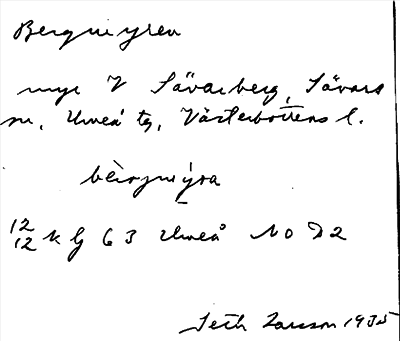 Bergmyren
myr V Sävarberg, Sävars
sn, Umeå tg, Västerbottens l.
bèrgmýra
12
12 K G 63 Umeå NO D2
Seth Larsson 1935